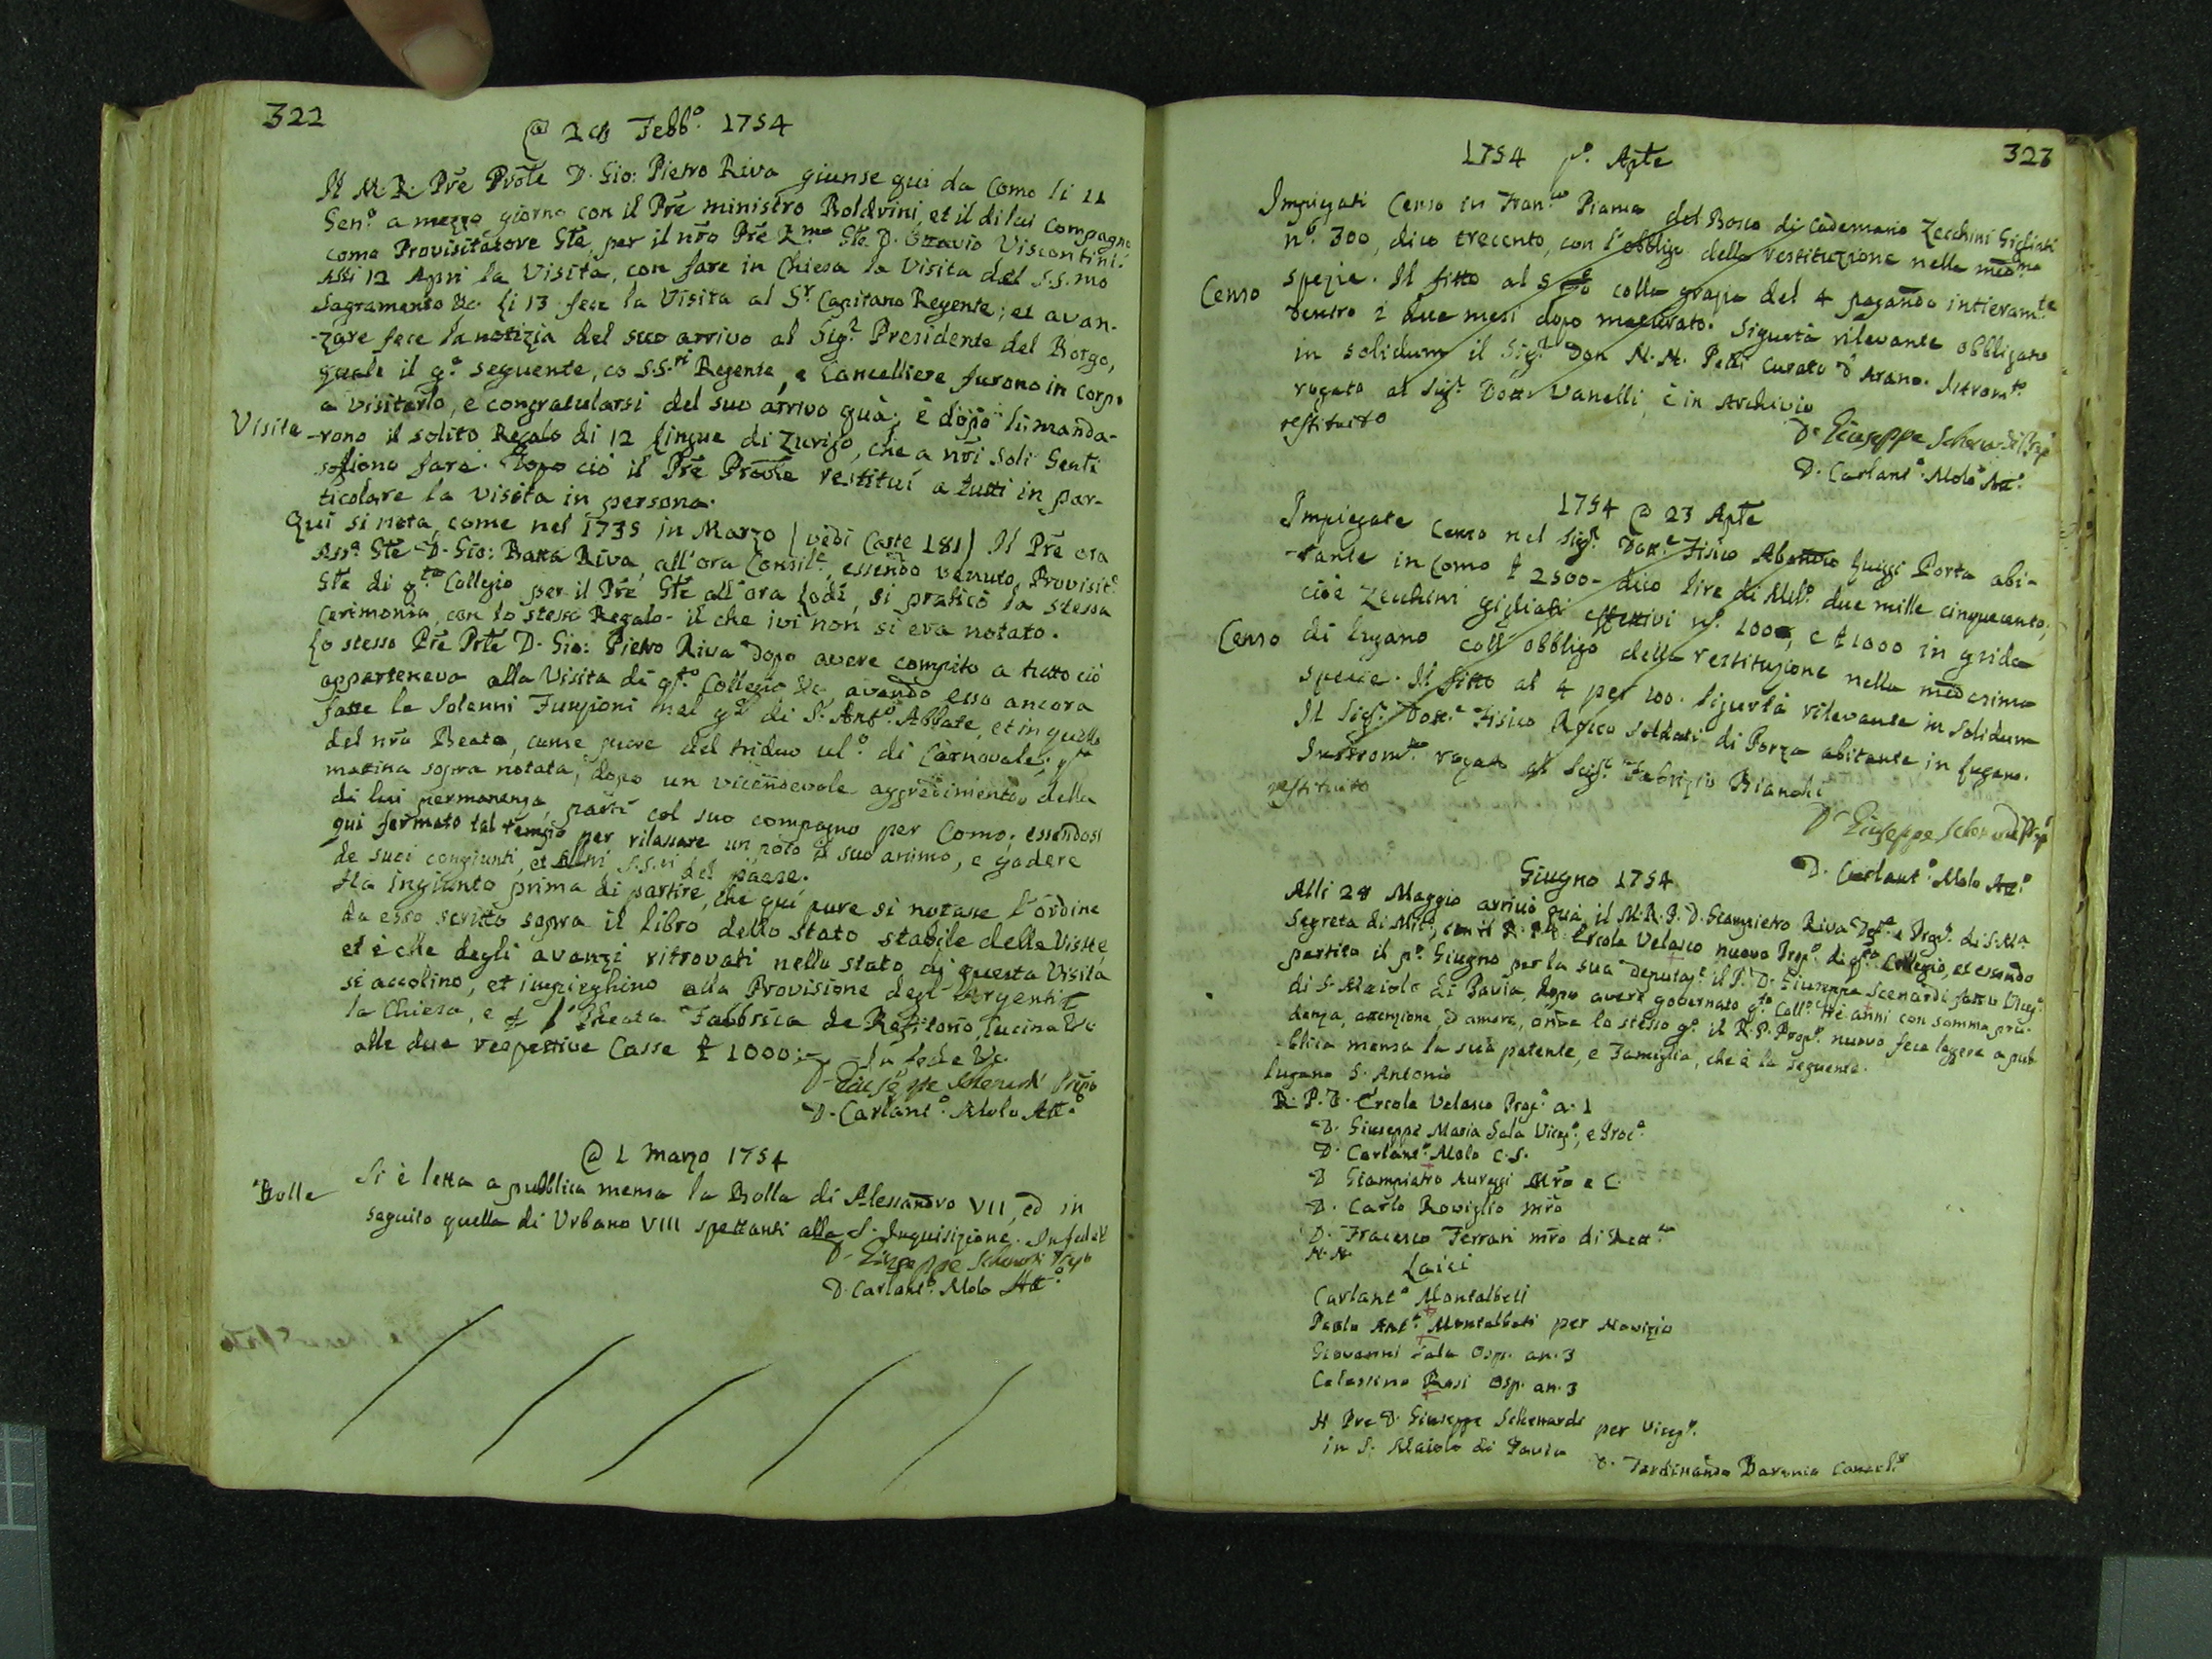 322
@ 28 Febb.º 1754
Il M. R. Pre Prôle D. Gio: Pietro Riva giunse qui da Como li 11
Gen.º a mezzo giorno con il Pre ministro Boldrini, et il di lui Compagno
come Provisitatore Gle, per il nro Pre Rmo Gle D. Ottavio Viscontini.
Alli 12 Aprì la Visita, con fare in Chiesa la Visita del S.S.mo
Sagramento &c. Li 13 fece la Visita al Sr. Capitano Regente; et avan-
-zare fece la notizia del suo arrivo al Sigr. Presidente del Borgo,
quale il gº seguente, co S.S.ri Regente, e Cancelliere furono in corpo
a visitarlo, e congratularsi del suo arrivo quà; e dopo li manda-
Visite
-rono il solito Regalo di 12 Lingue di Zurigo, che a nri soli Gnli
sogliono fare. Dopo ciò il Pre Prole restituì a tutti in par-
ticolare la visita in persona.
Qui si nota, come nel 1735 in Marzo (vedi Carte 181) Il Pre ora
Assº. Gle D. Gio: Batta Riva, all'ora Consil.e, essendo venuto Provisit.e
Gle di q.to Collegio per il Pre Gle all'ora Lodi, si praticò la stessa
Cerimonia, con lo stesso Regalo - il che ivi non si era notato.
Lo stesso Pre Prle D. Gio: Pietro Riva dopo avere compito a tutto ciò
apparteneva alla Visita di q.to Collegio &c, avendo esso ancora
fatte le Solenni Funzioni nel gº di S. Antº. Abbate, et in quello
del nro Beato, come pure del triduo ulº di Carnovale;
mattina sopra notata, dopo un vicendevole aggredimento della
di lui permanenza, partì col suo compagno per Como; essendosi
qui fermato tal tempo per rilassare un poco il suo animo, e godere
de suoi congiunti, et altri S.S.ri del paese.
Ha ingiunto prima di partire, che quì pure si notasse l'ordine
da esso scritto sopra il libro dello Stato stabile delle Visite,
et è che degli avanzi ritrovati nello stato di questa Visita
si accolino, et impieghino alla Provisione degl' Argenti
la Chiesa, e l'Ideata Fabbrica de Refitorio, Cucina &c
alle due respettive Casse £ 1000:- In fede &c
D. Giuseppe Schenardi Prepº
D. Carlantº. Molo Att.º
@ 1 Marzo 1754
Bolle
Si è letta a pubblica mensa la Bolla di Alessandro VII, ed in
seguito quella di Urbano VIII spettanti alla S. Inquisizione. In fede &c
D. Giuseppe Schenardi Prepº
D. Carlantº. Molo Att.º
323
1754 pº. Aple
Impiegati Censo in Fran.co Piama del Bosco di Cademario Zecchini Gigliati
nº. 300, dico trecento, con l'obbligo della restituzione nella medma
Censo
spezie. Il fitto al 5 colla grazia del 4 pagando intieram.te
dentro i due mesi dopo maturato. Sigurtà rilevante obbligato
in solidum il Sigr. Don N.N. Pelli Curato d'Arano. Istrom.to
rogato al Sigr. Dott. Vanelli, è in Archivio
restituito
D. Giuseppe Schenardi Prepº
D. Carlantº. Molo Att.º
1754 @ 23 Aple
Impiegate Censo nel Sigr. Dott.e Fisico Luiggi Porta abi-
-tante in Como £ 2500- dico lire di Milº. due mille cinquecento,
cioè Zecchini gigliati effettivi nº. 100, e £ 1000 in grida
Censo
di Lugano coll' obbligo della restituzione nella medesima
specie. Il fitto al 4 per 100. Sigurtà rilevante in solidum
Il Sigr. Dott.e Fisico Rocco Soldati di Porza abitante in Lugano.
Instrom.to rogato al Sigr. Fabrizio Bianchi
restituito
D. Giuseppe Schenardi Prepº
D. Carlantº. Molo Att.º
Giugno 1754
Alli 28 Maggio arrivò quà il M. R. P. D. Giampietro Riva e Propº. di S. Ma
Segreta di Milº, con il R. P. D. Ercole Velasco nuovo Propº. di q.to Collegio, et essendo
partito il pº. Giugno per la sua deputaz.e il P. D. Giuseppe Scenardi fatto Vicepº
di S. Maiolo di Pavia, dopo avere governato q.to Coll.º tre anni con somma pru-
denza, attenzione, ed amore, onde lo stesso gº il R. P. Propº. nuovo fece leggere a pub-
-blica mensa la sua patente, e Famiglia, che è la seguente.
Lugano S. Antonio
R. P. D. Ercole Velasco Propº. a. 1
D. Giuseppe Maria Sala Vicepº, e Procº.
D. Carlantº. Molo C. S.
D. Giampietro Aureggi Mro e C.
D. Carlo Roviglio mro
D. Fracesco Ferrari mro di Rett.ca
N. N.
Laici
Carlantº Montalbetti
Paolo Antº. Montalbeti per Novizio
Giovanni Sala Osp. an. 3
Celestino Rosi Osp. an. 3
Il Pre D. Giuseppe Schenardi per Vicepº.
in S. Maiolo di Pavia
D. Ferdinando Baronio Cancel.e